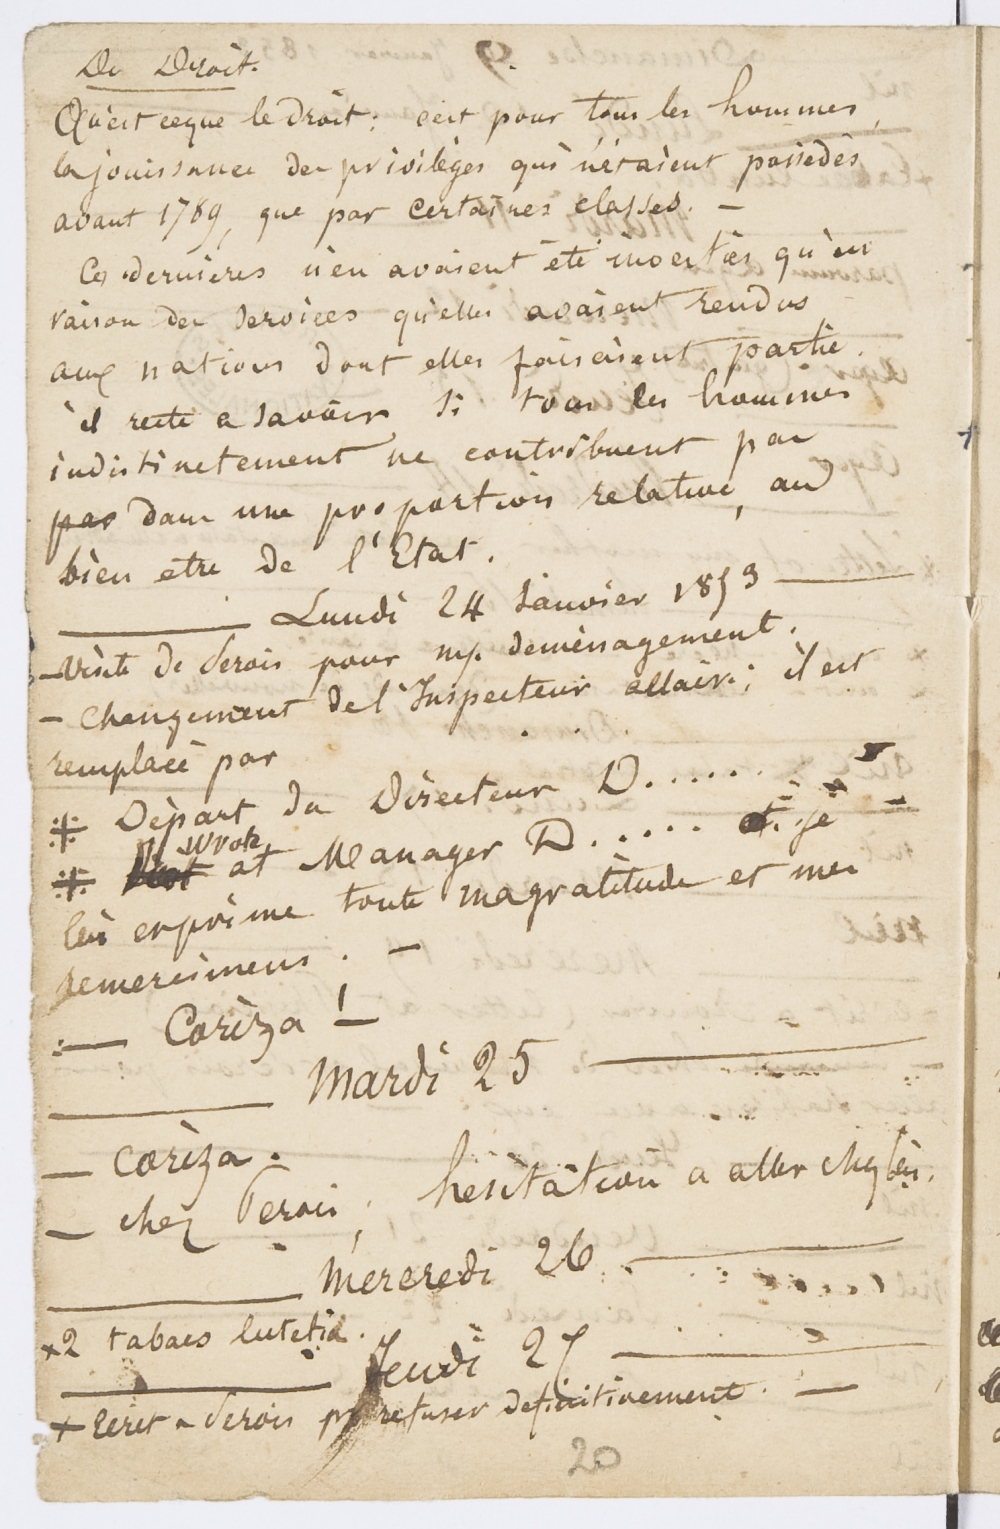 Du Droit.
Qu'est ceque le droit: c'est pour tous les hommes,
la jouissance des privilèges qui n'étaient possedés
avant 1789, que par certaines classes. —
Ces dernières n'en avaient été investies qu'en
raison des services qu'elles avaient rendus
aux nations dont elles faisaient partie.
il reste a savoir si tous les hommes
indistinctement ne contribuent pas
pas dans une proportion relative, au
bien etre de l'Etat.
Lundi 24 Janvier 1853
— visite de Verois pour mr. demènagement.
— changement de l'Inspecteur allair; il est
remplacé par . . . .
Dèpart du Directeur D......
wrote
at Manager D..... et je
lui exprime toute magratitude et mes
remercimens. —
— Corìza !
Mardi 25
— Corìza.
— chez Verois; hesitation a aller chez lui.
Mercredi 26
x2 tabacs lutetia.
Jeudi 27
x ecrit a Verois pr refuser definitivement. —
20